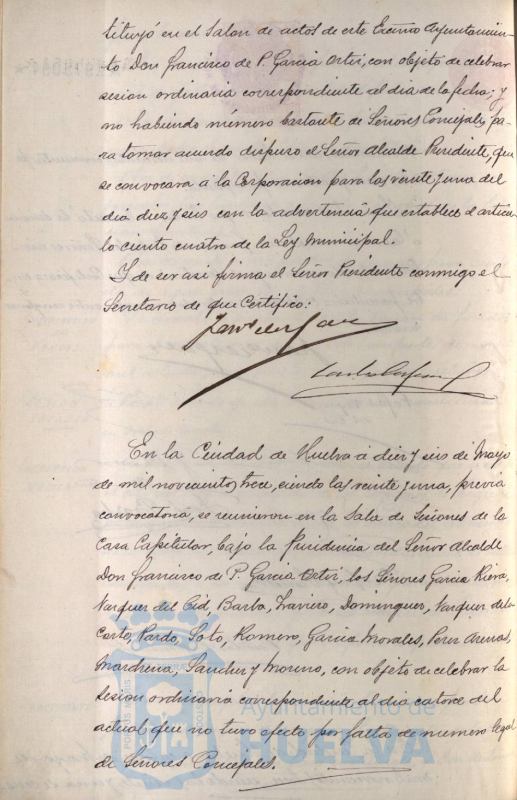 tituyó en el Salon de actos de este Excmo Ayuntamien-
to Don Francisco de P. Garcia Ortiz, con objeto de celebrar
sesion ordinaria correspondiente al dia de la fecha; y
no habiendo número bastante de Señores Concejales, pa-
ra tomar acuerdo dispuso el Señor Alcalde Presidente, que
se convocara á la Corporacion para las veinte y una del
dia diez y seis con la advertencia que establece el articu-
lo ciento cuatro de la Ley Municipal.
Y de ser asi firma el Señor Presidente conmigo el
Secretario de que Certifico:
En la Ciudad de Huelva á diez y seis de Mayo
de mil novecientos trece, siendo las veinte y una, previa
convocatoria, se reunieron en la Sala de Sesiones de la
Casa Capitular, bajo la Presidencia del Señor Alcalde
Don Francisco de P. Garcia Ortiz, los Señores Garcia Riera,
Vazquez del Cid, Barba, Traviero, Dominguez, Vazquez de la
Corte, Pardo, Soto, Romero, Garcia Morales, Perez Arenas,
Marchena, Sanchez y Moreno, con objeto de celebrar la
sesion ordinaria correspondiente al dia catorce del
actual que no tuvo efecto por falta de numero legal
de Señores Concejales.
Ayuntamiento de
HUELVA